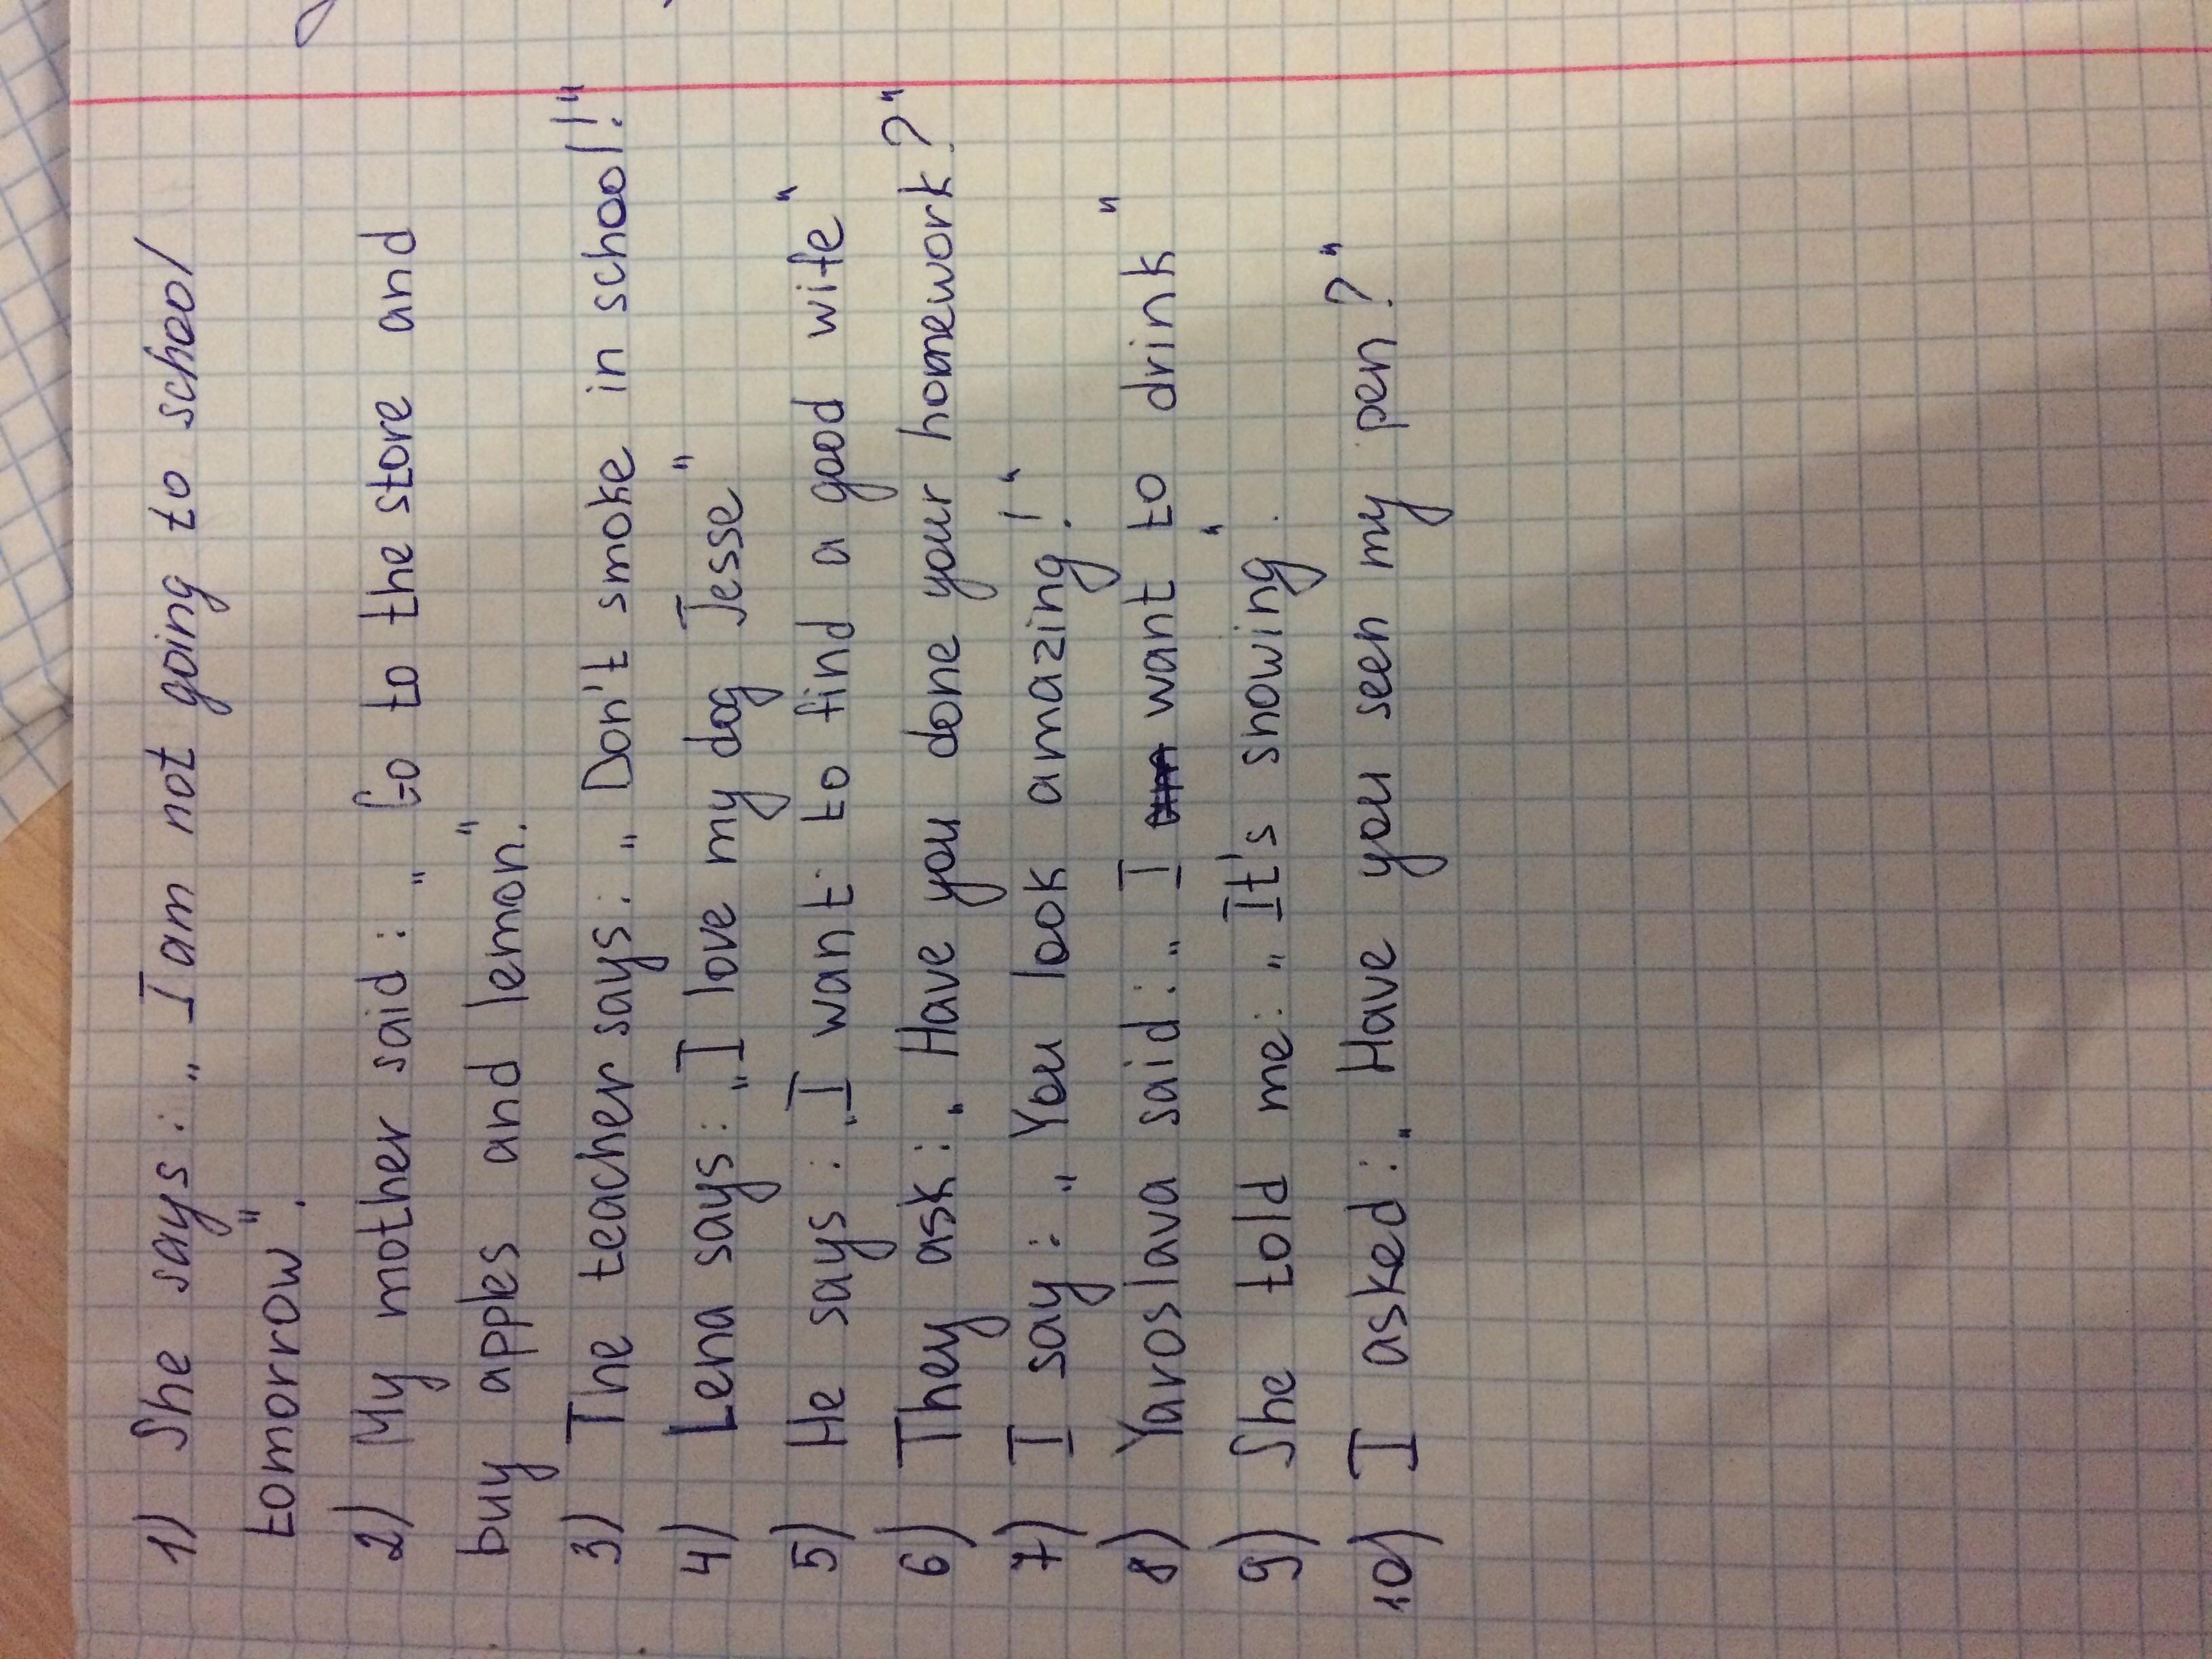 1) She says: „I am not going to school
tomorrow".
2) My mother said: „Go to the store and
buy apples and lemon."
3) The teacher says: „Don't smoke in school!"
4) Lena says: „I love my dog Jesse"
5) He says: „I want to find a good wife"
6) They ask: „Have you done your homework?"
7) I say: „You look amazing!"
8) Yaroslava said: „I want to drink"
9) She told me: „It's snowing".
10) I asked: „Have you seen my pen?"